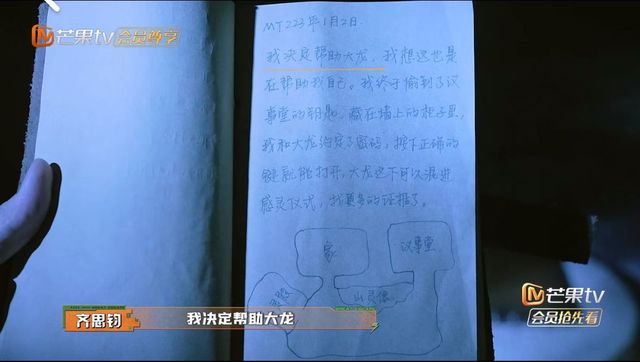 芒果tv
会员尊享
MT223年1月2日.
我决定帮助大龙，我想这也是
在帮助我自己。我终于偷到了议
事堂的钥匙，藏在墙上的柜子里，
我和大龙约定了密码，按下正确的
键就能打开，大龙这下可以混进
感灵仪式，找更多的证据了。
家
议事堂
山灵像
齐思钧
我决定帮助大龙
芒果tv
会员抢先看